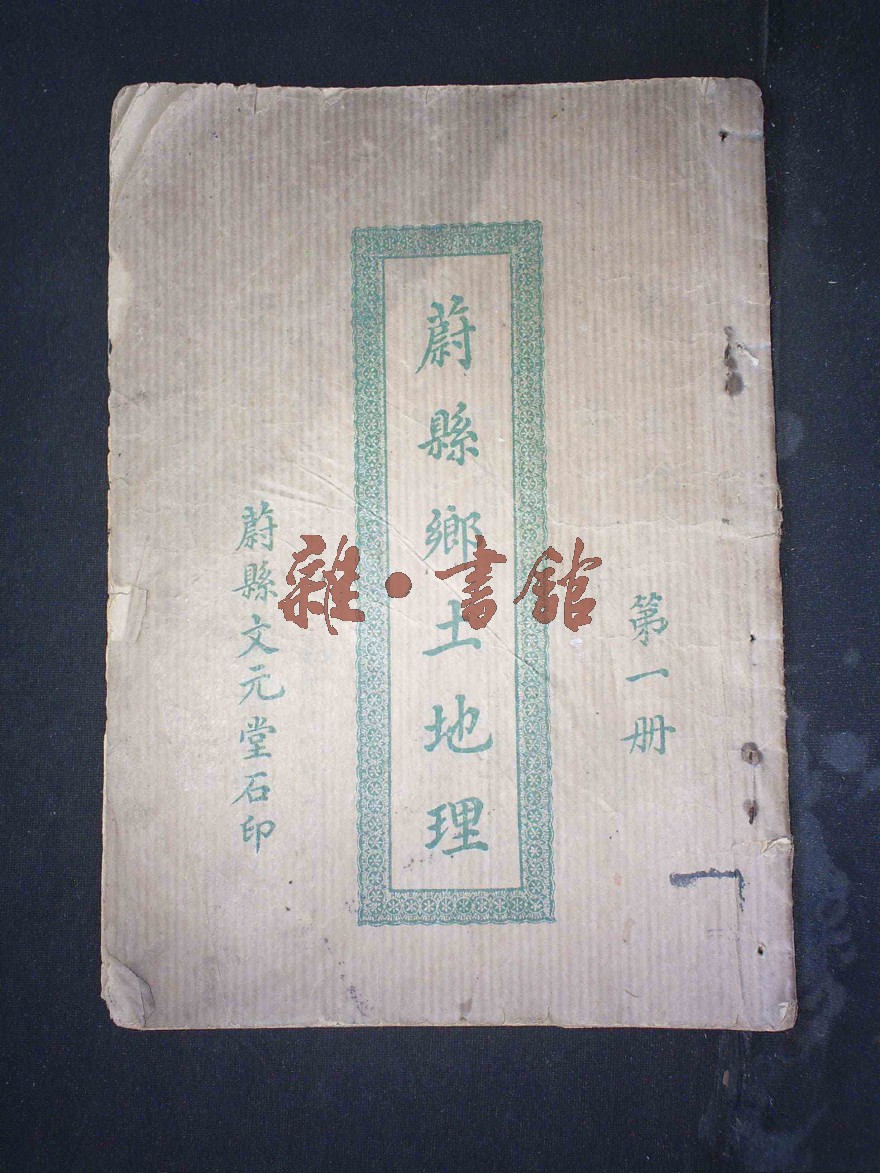 第一册
蔚縣鄉土地理
蔚縣文元堂石印
雜·書館